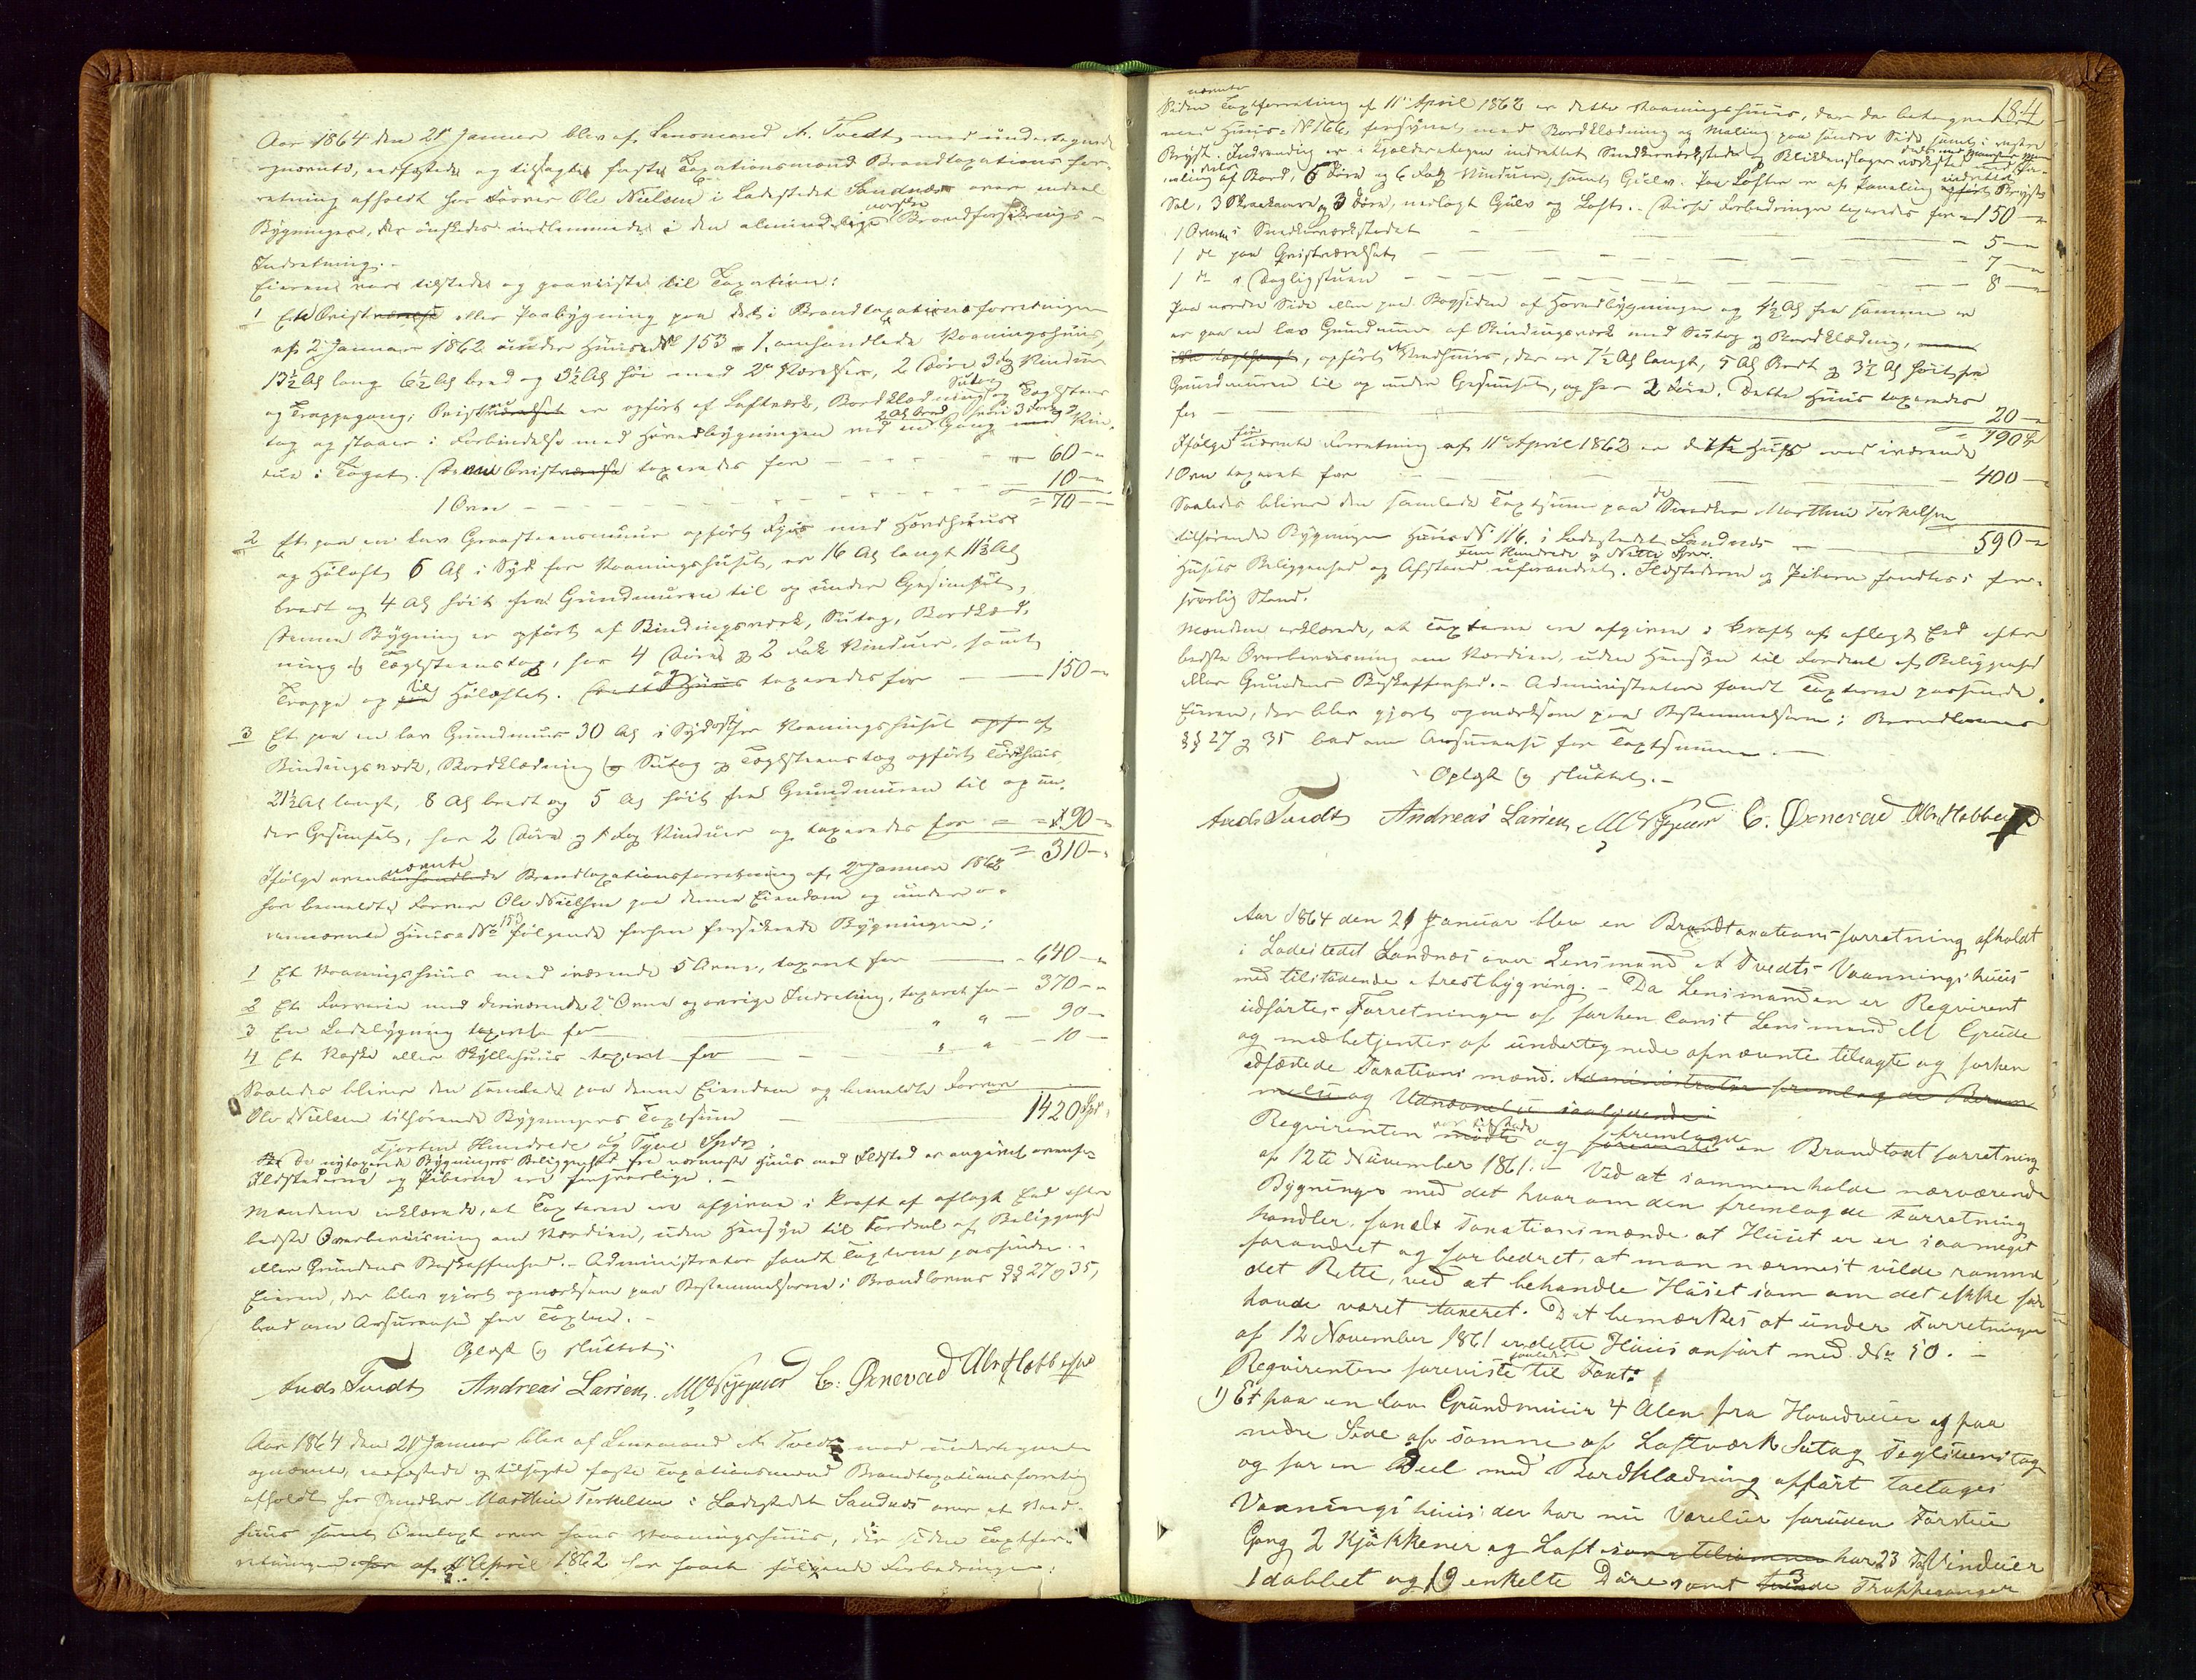 Aar 1864 den 21 Januar blev af Lensmand A. Tvedt med undertegnede
opnævnte, edfæstede og tilsagte faste Taxationsmænd Brandtaxationsfor-
retning afholdt hos Farver Ole Nielsen i Ladestedet Sandnæs over endeel
Bygninger, der ønskedes indlemmede i den almindelige norske Brandforsikrings-
Indretning.-
Eieren var tilstede og paaviste til Taxation:
1 Et Qvistværelse eller Paabygning paa det i Brandtaxationsforretningen
af 2 Januar 1862 under Huus No 153 - 1, omhandlede Vaaningshuus,
13½ Al lang 6½ Al bred og 3½ Al høi med 2 Værelser, 2 Døre 3 Fag Vinduer
og Trappegang; Qvistværelset er opført af Laftværk, Bordklædning Sutag og Taglsteens
tag og staaer i Forbindelse med Hovedbygningen ved en 2 Al bred Gang hvori 3 Fag Vin-
duer i Taget. Denne Qvistværelse taxeredes for - 60 -
1 Ovn - - - 10 -
= 70 -
2 Et paa en lav Graasteensmuur opført Fjøs med Hæsthuus
og Høloft 6 Al i Syd for Vaaningshuset, er 16 Al langt 11½ Al
bredt og 4 Al høit fra Grundmuren til op under Gesimset,
Denne Bygning er opført af Bindingsværk, Sutag, Bordklæd-
ning og Taglsteenstag, har 4 Døre og 2 Fag Vinduer, samt
Trappe op til Høloftet. Dette Huus taxeredes for - 150 -
3 Et paa en lav Grundmuur 30 Al i Sydost for Vaaningshuset opfør af
Bindingsværk, Bordklædning og Sutag og Taglsteenstag opført Tørkhuus
21½ Al langt, 8 Al bredt og 5 Al høit fra Grundmuren til op un-
der Gesimset, har 2 Døre og 1 Fag Vinduer og taxeredes for - 90 -
= 310 -
Ifølge ovennævnte Brandtaxationsforretning af 2 Januar 1862
har bemeldte Farver Ole Nielsen paa denne Eiendom og under
nævnte Huus No 153 følgende forhen forsikrede Bygninger:
1 Et Vaaningshuus med iværende 5 Ovne, taxeret for - 640 -
2 Et Farveri med deriværende 2 Ovne og øvrige Indretning, taxeret for - 370 -
3 En Ladebygning taxeret for " " - 90 -
4 Et Vaske eller Skyllehuus taxeret for " " - 10 -
Saaledes bliver den samlede paa denne Eiendom og bemeldte Farver
Ole Nielsen tilhørende Bygningers Taxtsum - 1420 Spd
Fjorten Hundrede og Tyve Spdr.
De nytaxerede Bygningers Beliggenhed fra nærmeste Huus med Ildsted er angivet ovenfor.
Ildstederne og Piberne ere forsvarlige. -
Mændene erklærede, at Taxterne ere afgivne i Kraft af aflagt Eed efter
bedste Overbeviisning om Værdien, uden Hensyn til Fordeel af Beliggenhed
eller Grundens Beskaffenhed. - Administrator fandt Taxterne passende. -
Eieren, der blev gjort opmærksom paa Bestemmelserne i Brandlovens §§ 27 og 35,
bad om Assurance for Taxten. -
Oplæst og sluttet.
Ands Tvedt Andreas Larsen C. Øxnevad
Aar 1864 den 21 Januar blev af Lensmand A. Tvedt med undertegnede
opnævnte, edfæstede og tilsagte faste Taxationsmænd Brandtaxationsforretning
afholdt hos Snedker Marthin Terkelsen i Ladestedet Sandnæs over et Vaad-
huus samt Omtaxt over hans Vaaningshuus, der siden Taxtfor-
retningen af 11 April 1862 har havt følgende Forbedringer:
184
Siden nævnte Taxtforretning af 11te April 1862 er dette Vaaningshuus, der da betegnedes
med Huus-No 166, forsynet med Bordklædning og Maling paa søndre Side samt i vestre
Bryst. Indvendig er i Kjelderetagen indrettet Snedkerværksted og Blikkenslagerværksted
af Bord, 6 Døre og 6 Fag Vinduer, samt Gulv. Paa Loftet er af Paneling indrettet
Sal, 3 Skraakamre og 3 Døre, nedlagt Gulv og Loft. - Disse Forbedringer taxeredes for - 150 -
1 Ovn i Snedkerværkstedet - 5 -
1 do paa Qvistværelset - 7 -
1 do i Dagligstuen - 8 -
Paa nordre Side eller paa Bagsiden af Hovedbygningen og 4½ Al fra samme er
er paa en lav Grundmuur af Bindingsværk med Sutag og Bordklædning,
opført et Vedhuus, der er 7½ Al langt, 5 Al bredt og 3½ Al høit fra
Grundmuren til op under Gesimset, og har 2 Døre. Dette Huus taxeredes
for - 20 -
= 190 -
Ifølge før nævnte Forretning af 11te April 1862 er dette Huus med iværende
1 Ovn taxeret for - 400 -
Saaledes bliver den samlede Taxtsum paa de Snedker Marthin Terkelsen
tilhørende Bygninger Huus No 116. i Ladestedet Sandnæs - 590 -
Fem Hundrede og Nitti Spd.
Husets Beliggenhed og Afstand uforandret. Ildstederne og Piberne fandtes i for-
svarlig Stand.
Mændene erklærede, at Taxterne ere afgivne i Kraft af aflagt Eed efter
bedste Overbeviisning om Værdien, uden Hensyn til Fordeel af Beliggenhed
eller Grundens Beskaffenhed. - Administrator fandt Taxterne passende.
Eieren, der blev gjort opmærksom paa Bestemmelserne i Brandlovens
§§ 27 og 35 bad om Assurance for Taxtsummen. -
Oplæst og sluttet. -
Ands Tvedt Andreas Larsen C. Øxnevad
Aar 1864 den 21 Januar blev en Brandtaxationsforretning afholdt
i Ladestedet Sandnæs over Lensmand A Tvedts Vaaningshuus
med tilstødende Arestbygning. - Da Lensmanden er Reqvirent
udførtes Forretningen af forhen Const Lensmand M Grude
og medbetjentes af undertegnede opnævnte tilsagte og forhen
edfæstede Taxationsmænd. Administrator fremlagde Beram
melse og Udnævnelse saalydende:
Reqvirenten mødte var tilstede og foreviste fremlagde en Brandtaxtforretning
af 12te November 1861. - Ved at sammenholde nærværende
Bygninger med det hvorom den fremlagde Forretning
handler, fandt Taxationsmænde at Huuset er er saameget
forandret og forbedret, at man nærmest vilde ramme
det Rette, ved at behandle Huset som om det ikke før
havde været taxeret. Det bemærkes at under Forretningen
af 12 November 1861 er dette Huus anført med No 50. -
Reqvirenten foreviste til Taxt:
1) Et paa en lav Grundmuur 4 Alen fra Hovedveien og paa
nedre Side af samme af Laftværk Sutag Teglsteenstag
og for en Deel med Bordklædning opført toetages
Vaaningshuus: der har ni Værelser foruden Forstue
Gang 2 Kjøkkener og Loft som tilsammen har 23 Fag Vinduer
1 dobbet og 19 enkelte Døre samt 3 Trappegange